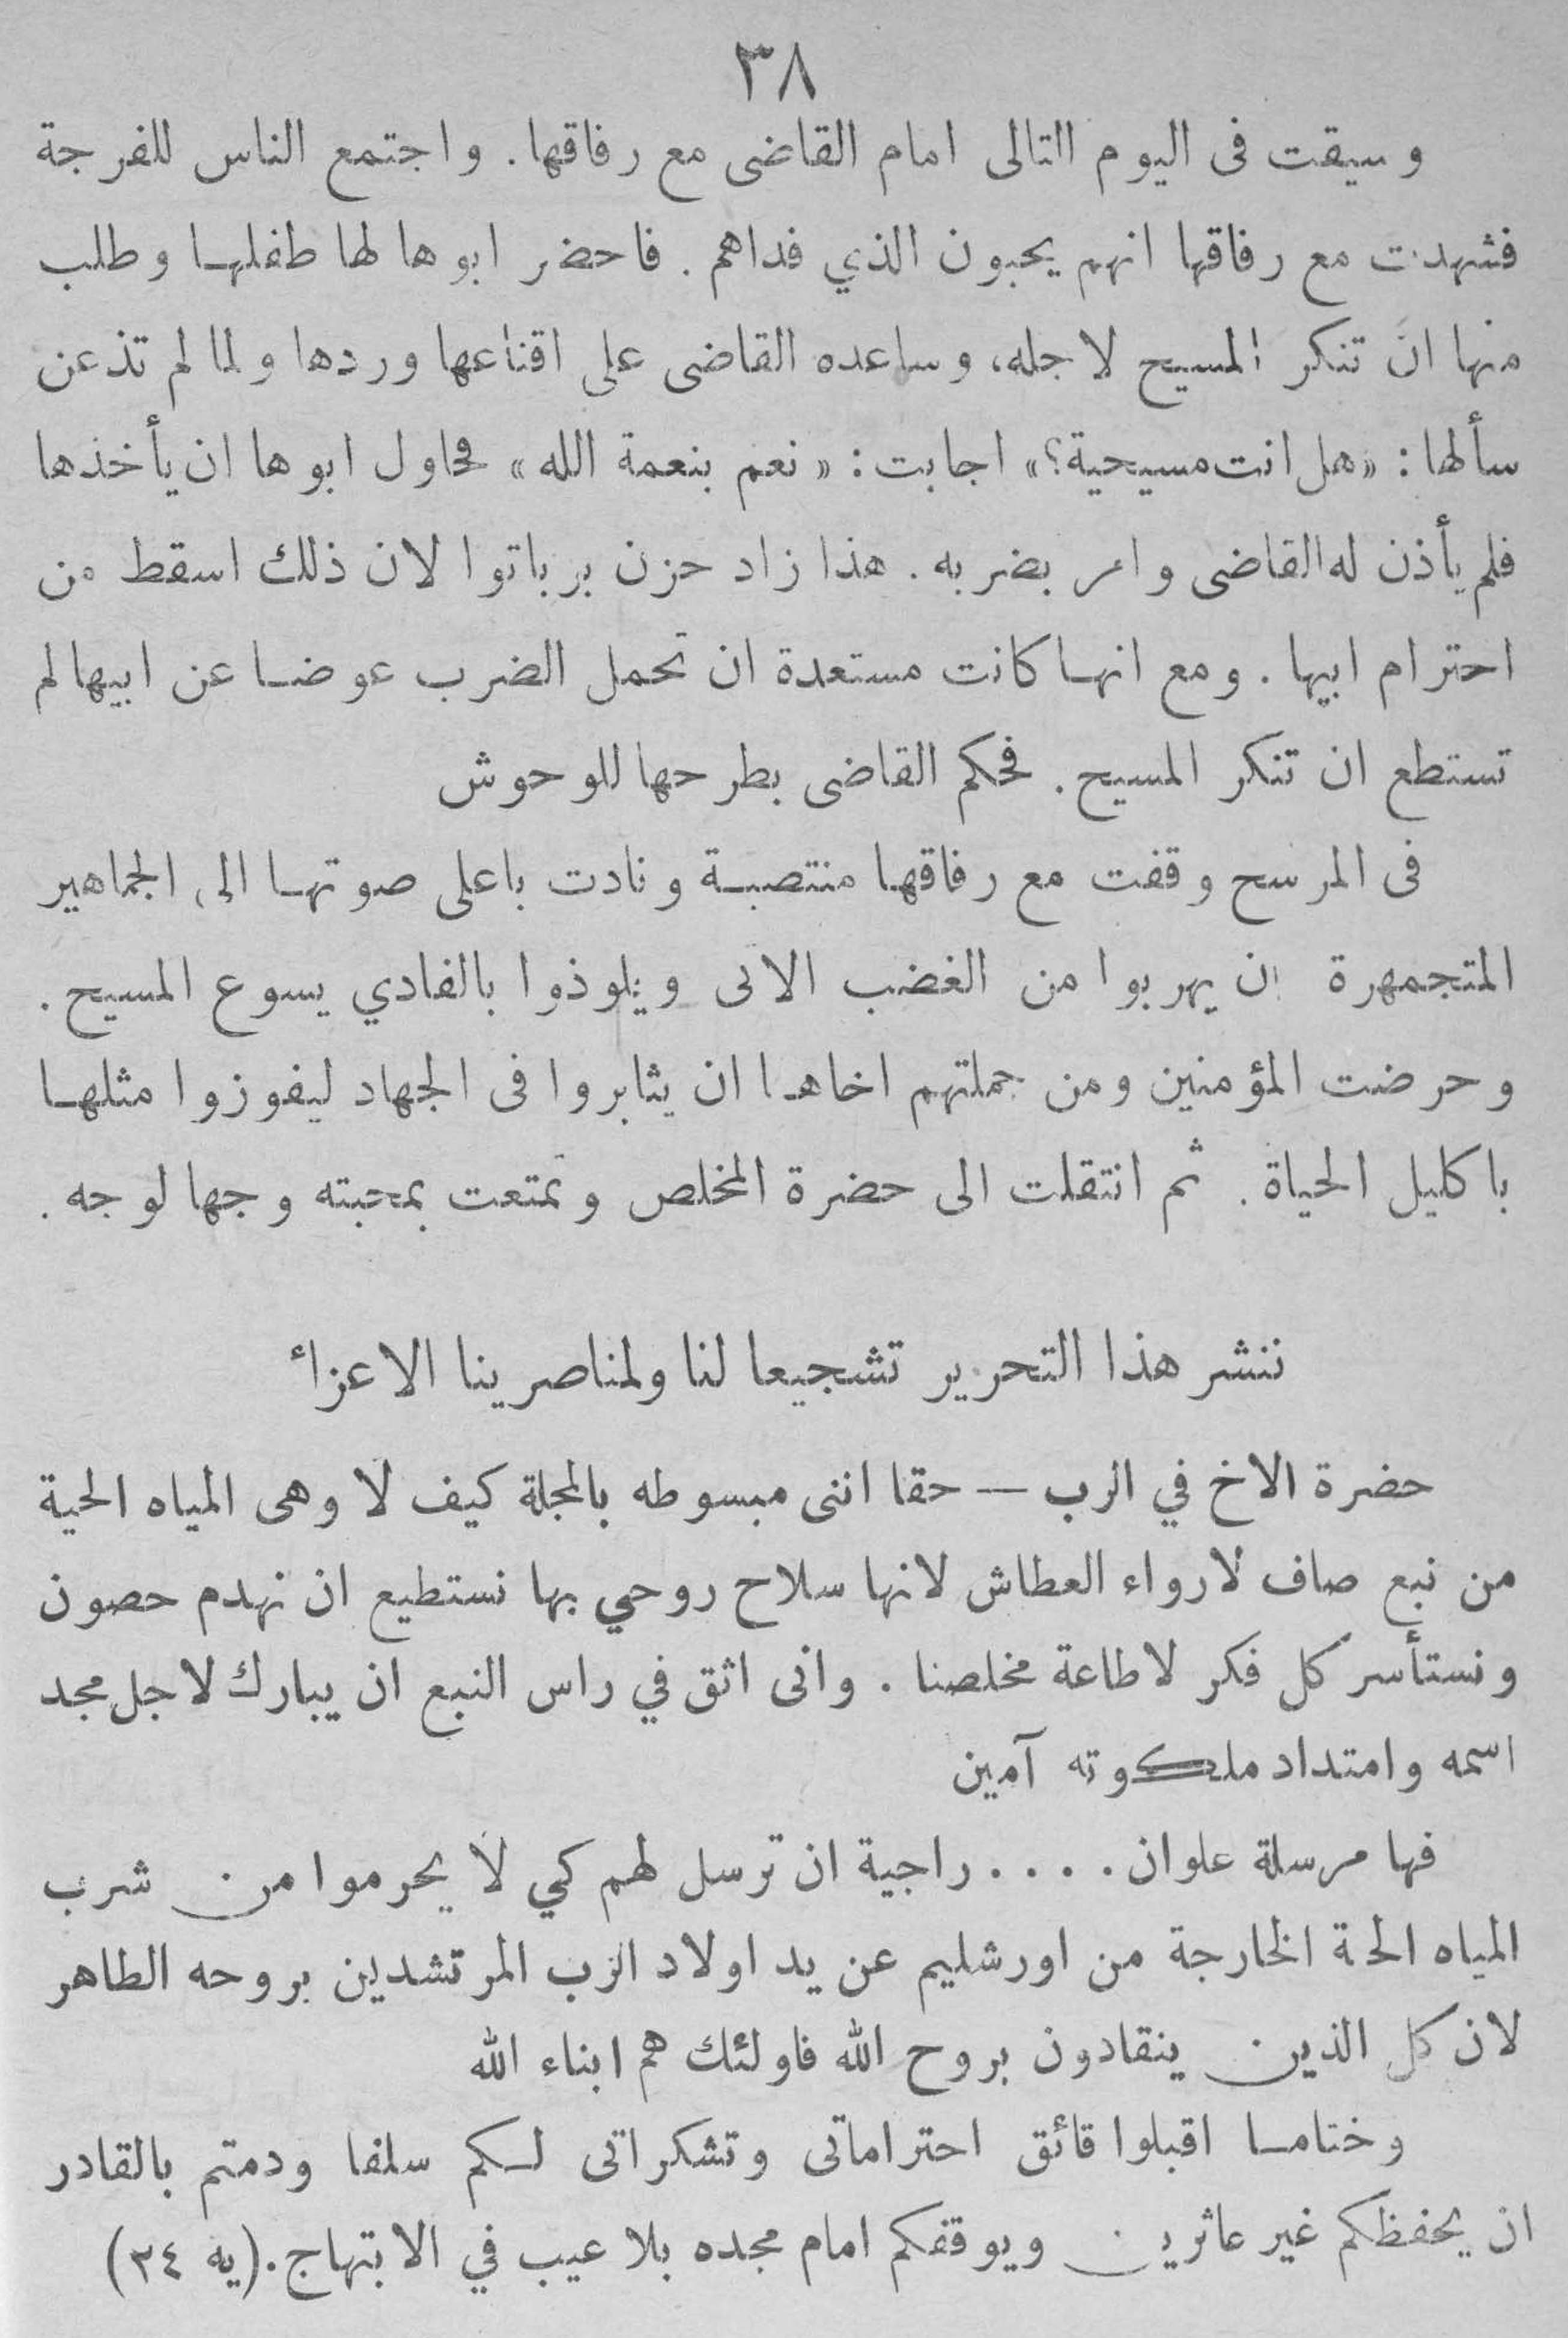 ٣٨
وسيقت فى اليوم التالى امام القاضى مع رفاقها. واجتمع الناس للفرجة
فشهدت مع رفاقها انهم يحبون الذي فداهم. فاحضر ابوها لها طفلها وطلب
منها ان تنكر المسيح لاجله، وساعده القاضى على اقناعها وردها ولما لم تذعن
سألها: «هل انت مسيحية؟» اجابت: «نعم بنعمة الله» فحاول ابوها ان يأخذها
فلم يأذن له القاضى وامر بضربه. هذا زاد حزن برباتوا لان ذلك اسقط من
احترام ابيها. ومع انها كانت مستعدة ان تحمل الضرب عوضا عن ابيها لم
تستطع ان تنكر المسيح. فحكم القاضى بطرحها للوحوش
فى المرسح وقفت مع رفاقها منتصبة ونادت باعلى صوتها الى الجماهير
المتجمهرة ان يهربوا من الغضب الاتى ويلوذوا بالفادي يسوع المسيح.
وحرضت المؤمنين ومن جملتهم اخاها ان يثابروا فى الجهاد ليفوزوا مثلها
باكليل الحياة. ثم انتقلت الى حضرة المخلص وتمتعت بمحبته وجها لوجه.
ننشر هذا التحرير تشجيعا لنا ولمناصرينا الاعزاء
حضرة الاخ في الرب — حقا اننى مبسوطه بالمجلة كيف لا وهى المياه الحية
من نبع صاف لارواء العطاش لانها سلاح روحي بها نستطيع ان نهدم حصون
ونستأسر كل فكر لاطاعة مخلصنا. وانى اثق في راس النبع ان يبارك لاجل مجد
اسمه وامتداد ملكوته آمين
فها مرسلة علوان.... راجية ان ترسل لهم كي لا يحرموا من شرب
المياه الحة الخارجة من اورشليم عن يد اولاد الرب المرتشدين بروحه الطاهر
لان كل الذين ينقادون بروح الله فاولئك هم ابناء الله
وختاما اقبلوا قائق احتراماتى وتشكراتى لكم سلفا ودمتم بالقادر
ان يحفظكم غير عاثرين ويوقفكم امام مجده بلا عيب في الابتهاج. (يه ٢٤)